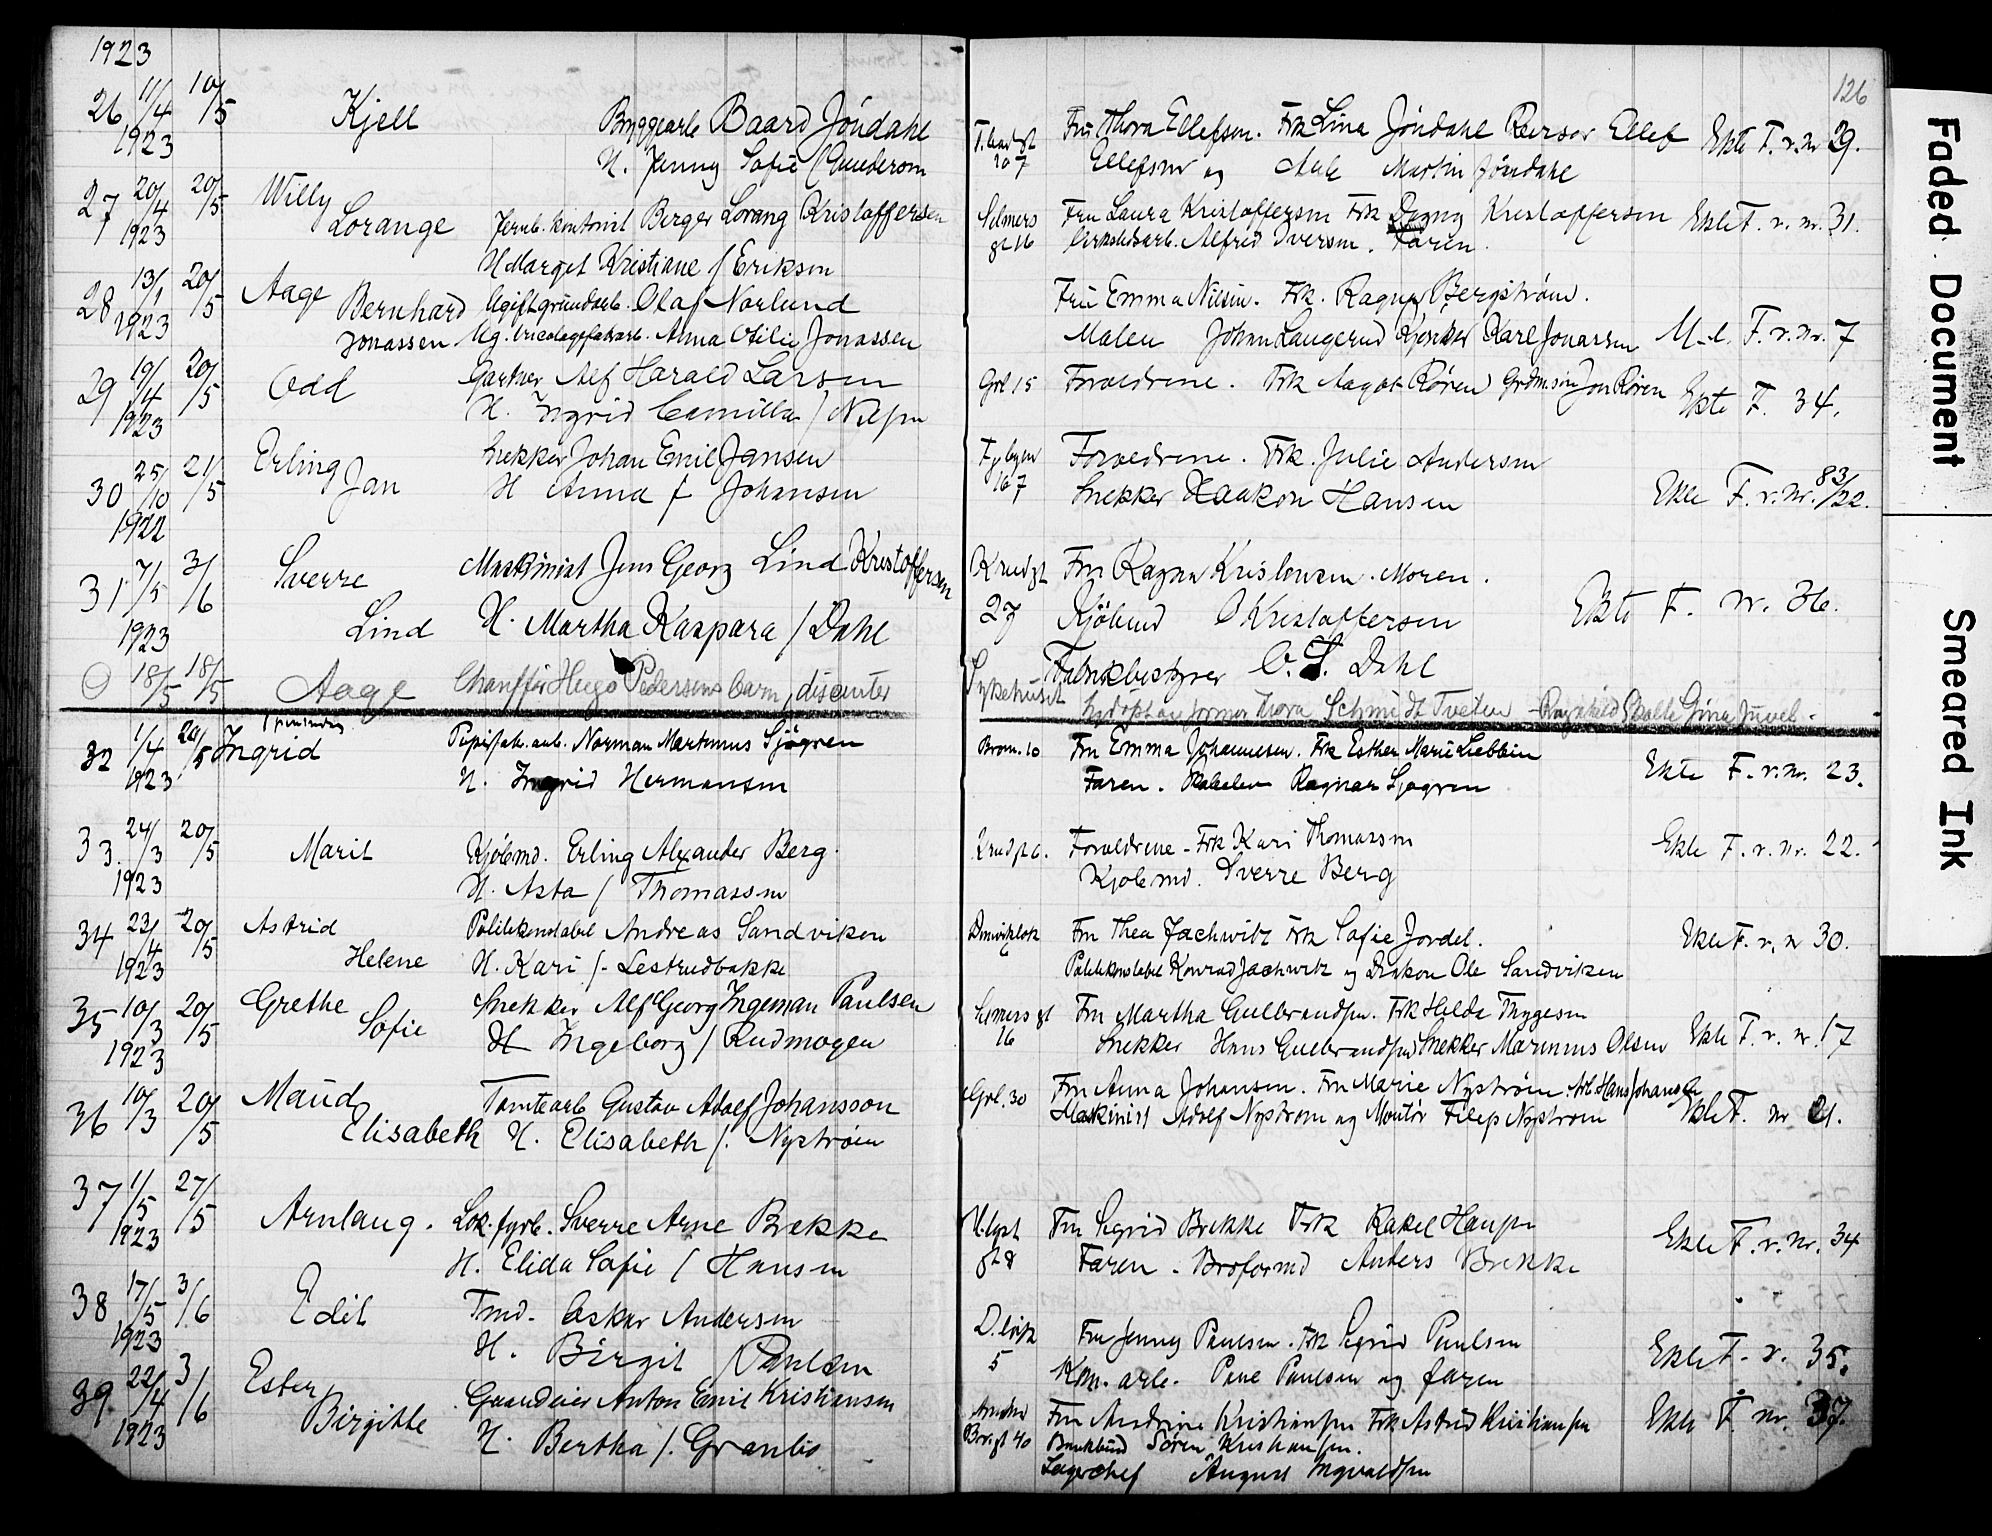 1923
126
26 11/4 1923 10/5 Kjell Byggearb Baard Jöndahl
H. Jenny Sofie / Gunderson
Fru Thora Ellefsen. Frk Lina Jöndahl Reersør Ellef
Ellefsen og Martin Jöndahl
Ekte F. r. nr 29.
27 20/4 1923 20/5 Willy Lorange
Jernb. kontorist Berger Lorang Kristoffersen
H Margit Kristiane / Eriksen
Selmers gt 16
Fru Laura Kristoffersen Frk Dagny Kristoffersen
Alfred Iversen. Faren.
Ekte F. r. nr. 31.
28 13/1 1923 20/5 Aage Bernhard Jonassen
Ugift grundarb. Olaf Norlund
Ug. tricotagefabarb. Anna Otilie Jonassen
Fru Emma Nilsen. Frk. Ragna Bergström.
Malen Johan Langerud Karl Jonassen
F. r. nr. 7
29 19/4 1923 20/5 Odd
Gartner Alf Harald Larsen
H. Ingrid Camilla / Nilsen
Grl 15
Foreldrene. Frk Aagot Røren Jon Røren
Ekte F. 34.
30 25/10 1922 21/5 Erling Jan
Snekker Johan Emil Jansen
H Anna / Johansen
Foreldrene. Frk. Julie Andersen
Snekker Haakon Hansen
Ekte F. r. nr. 83/22.
31 7/5 1923 3/6 Sverre Lind
Maskinist Jens Georg Lind Kristoffersen
H. Martha Kaspara / Dahl
Knudgt 27
Fru Ragna Kristensen. Moren.
Kjölmd O Kristoffersen
Fabrikbestyrer O. S. Dahl
Ekte F. nr. 36.
18/5 18/5 Aage
Chauffør Hugo Pedersens barn, disenter
Sykehuset
Hjdöpt av jormor Thora Schmidt Tveten - Ragnhild Skolte Gina Juvel.
32 1/4 1923 20/5 Ingrid
Papirfab. arb. Norman Martinus Sjögren
H. Ingrid Hermansen
Brom. 10
Fru Emma Johannesen. Frk Esther Marie Liebbin
Faren. Ragnar Sjøgren
Ekte F. r. nr. 23.
33. 24/3 1923 20/5 Marit
Kjölemd. Erling Alexander Berg.
H. Asta / Thomassen
Foreldrene - Frk Kari Thomassen
Kjolemd. Sverre Berg
Ekte F. r. nr. 22.
34 23/4 1923 20/5 Astrid Helene
Politikonstabel Andreas Sandviken
H. Kari /. Lestrudbakke
Fru Thea Jachwitz Frk Sofie Jordel.
Politikonstabel Konrad Jachwitz og Diakon Ole Sandviken
Ekte F. r. n 30.
35 10/3 1923 20/5 Grethe Sofie
Snekker Alf Georg Ingeman Paulsen
H Ingeborg / Rudmogen
Selmers gt 16
Fru Martha Gulbrandsen. Frk Hilda Thygesen
Snekker Hans Gulbrandsen Snekker Marinius Olsen
Ekte F. r. nr. 17
36 10/3 20/5 Maud Elisabeth
Tomtearb Gustav Adolf Johansson
H. Elisabeth /. Nyström
Grl. 30
Fru Anna Johansen. Fru Marie Nyström. Arb. Hans Johansen
Maskinist Adolf Nystrom og Montör Filip Nystrom
Ekte F. nr 21.
37 1/5 1923 27/5 Arnlaug.
Lok. fyrb. Sverre Arne Brekke
H. Elida Sofie / Hansen
Fru Sigrid Brekke Frk Rakel Hansen
Faren. Broformd Anders Brekke
Ekte F. r. nr. 34
38 17/5 1923 3/6 Edit
Tmd. Oskar Andersen
H. Birgit / Paulsen
5
Fru Jenny Paulsen. Frk Sigrid Paulsen
Kom. arb. Paulsen og faren
Ekte F. r. 35.
39. 22/4 1923 3/6 Ester Birgitte
Gaardeier Anton Emil Kristiansen
H. Bertha /. Granbo
Fru Andrine Kristiansen Frk Astrid Kristiansen
Sören Kristiansen.
Lagerchef August Ingvaldsen
Ekte F. nr. 37.
Faded Document
Smeared Ink